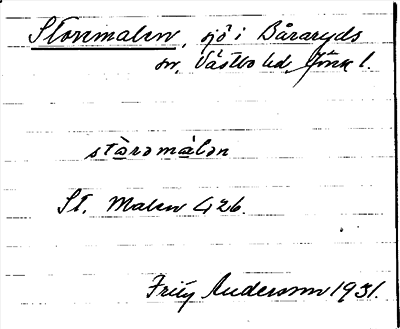 Stormalen, sjö i Båraryds
sn, Västbo hd, Jönk l.
stàrəmàlən
St. Malen 426.
Fritz Andersson 1931.